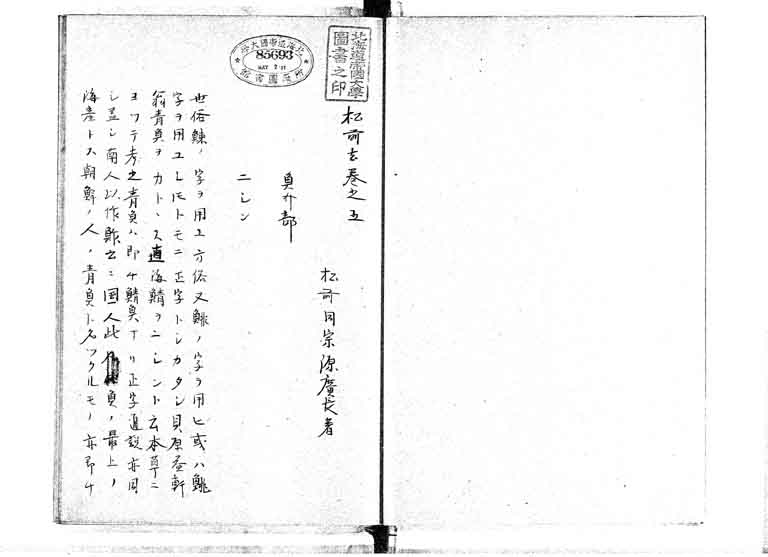 北海道帝國大學
圖書之印
北海道帝國大學
85693
附屬圖書館
松前志巻之五
松前同宗源廣長著
魚介部
ニシン
世俗鰊ノ字ヲ用ユ方俗又鯡ノ字ヲ用ヒ或ハ
字ヲ用ユレトモトモニ正字トシカタシ貝原益軒
翁青魚ヲカトヽス直海鯖ヲニシント云本草ニ
ヨツテ考之青魚ハ即チ鯖魚ナリ正字通説亦同
シ盖シ南人以作鮓云ニ国人此魚ノ最上ノ
海産トス朝鮮ノ人ノ青魚ト名ツクルモノ亦即チ